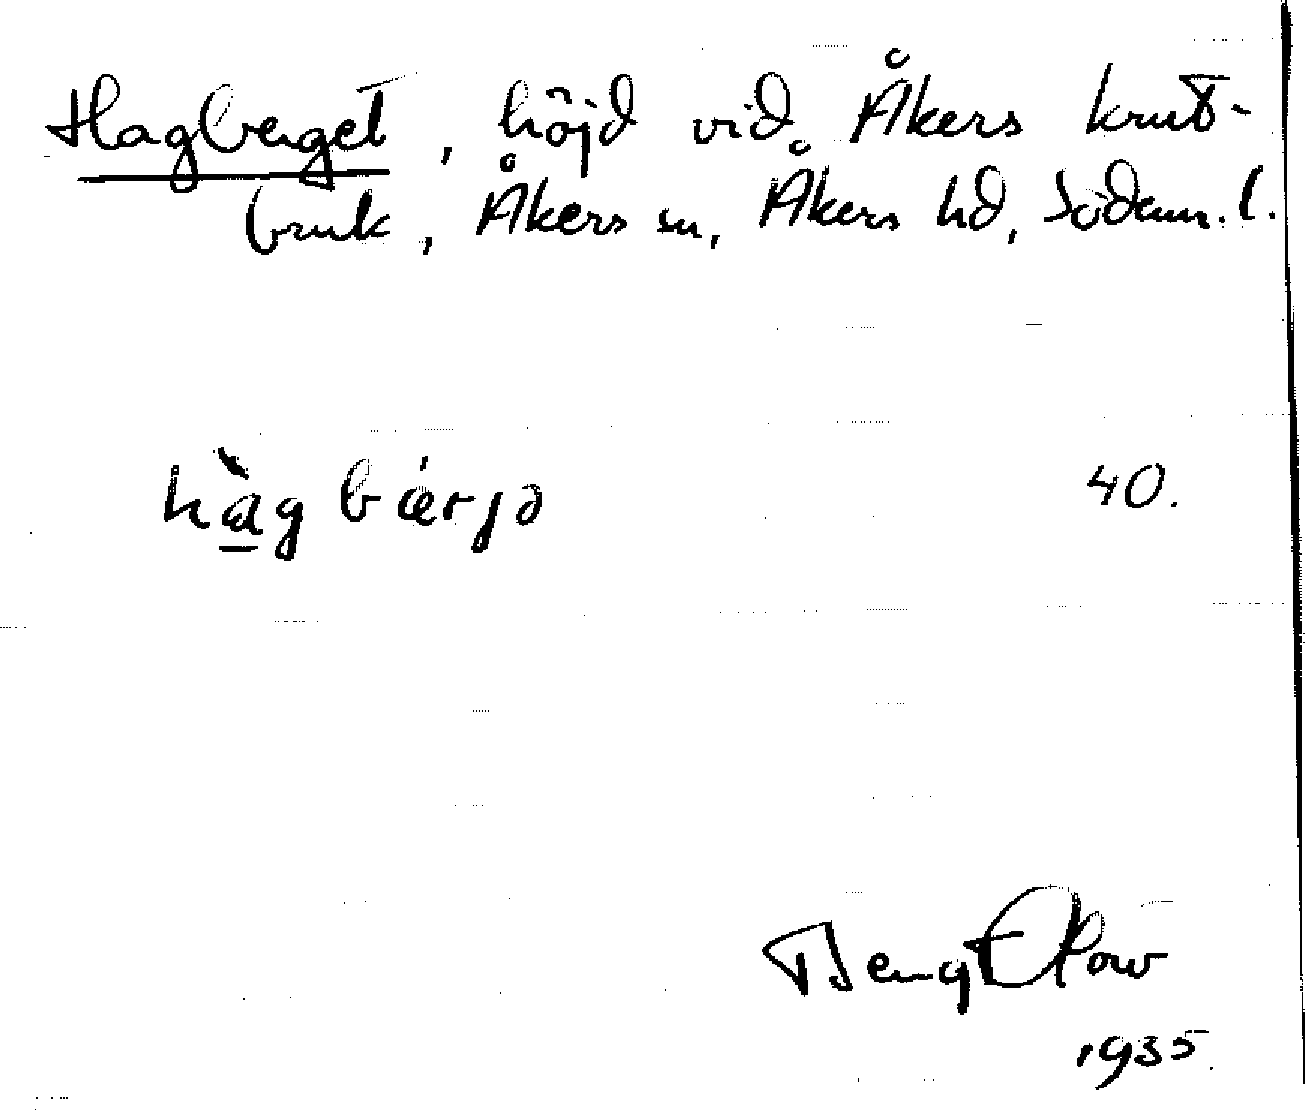 Hagberget, höjd vid Åkers krut-
bruk, Åkers sn, Åkers hd, Södm. l.
hàg bǽrjə 40.
Bengt Olow
1935.